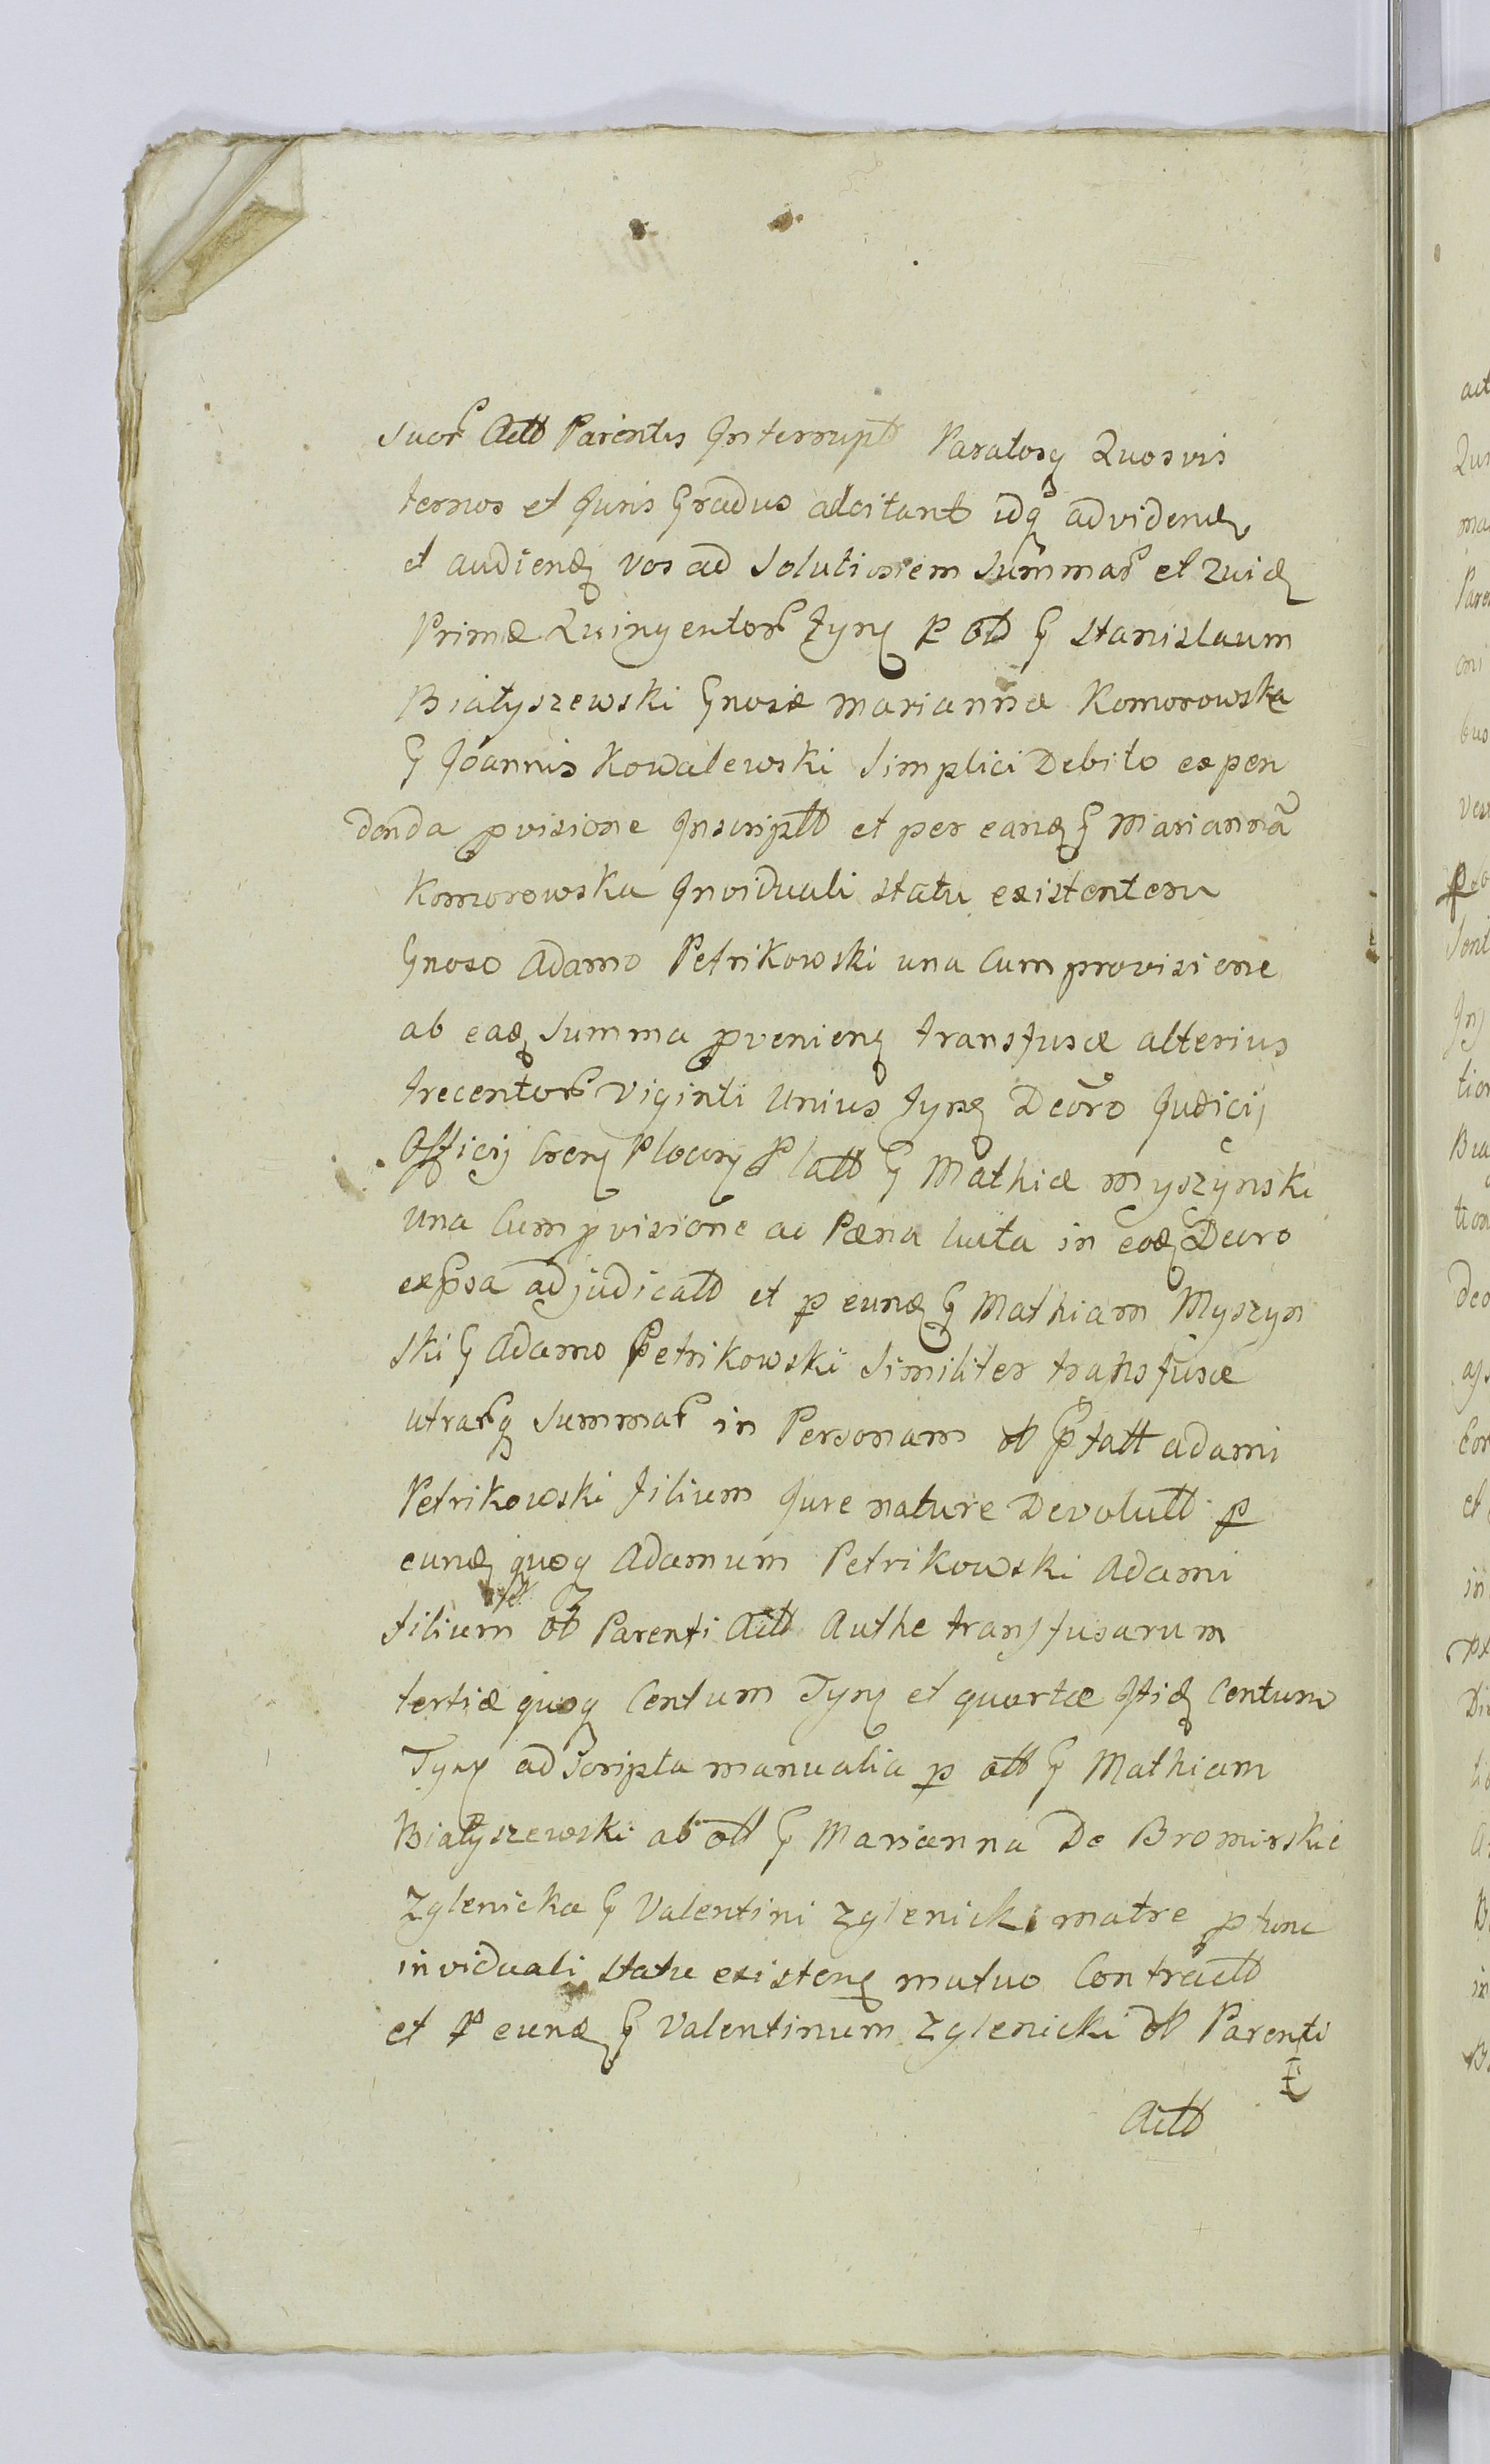 Suor Actt Parentis Interrupt Paratosq Quosvis
ternos et Juris Gradus adcitant idq advidend
et audiend vos ad Solutionem Summar et Quid
Primæ Quingentor Fyng p ott G Stanislaum
Białyszewski Gnosæ Mariannæ Komorowska
G Joannis Kowalewski Simplici Debito expen
denda pvisione Inscriptt et per eand G Mariannã
Komorowska Inviduali statu existentem
Gnoso Adamo Petrikowski una Cum provisione
ab ead Summa pvenieng transfusæ alterius
trecentor Viginti Unius Fyng Decro Judicij
Officij Crens Plocens platt G Mathiæ Myszynski
una Cum pvisione ac Pæna luita in eod Decro
expsa adjudicatt et p eund G Mathiam Myszyn
ski G Adamo Petrikowski Similiter transfusæ
utrarq Summar in Personam ott ptatt Adami
Petrikowski filium Jure nature Devolutt p
eund quoq Adamum Petrikowski Adami
filium ott Parenti Actt Authe transfusarum
tertiæ quoq Centum Tyng et quartæ Itid Centum
Tyng ad Scripta manualia p ott G Mathiam
Białyszewski ab ott G Marianna De Bromirskie
Zglenicka G Valentini Zglenicki matre ptunc
inviduali statu existeng mutuo Contractt
et p eund G Valentinum Zglenicki ott Parenti
Actt